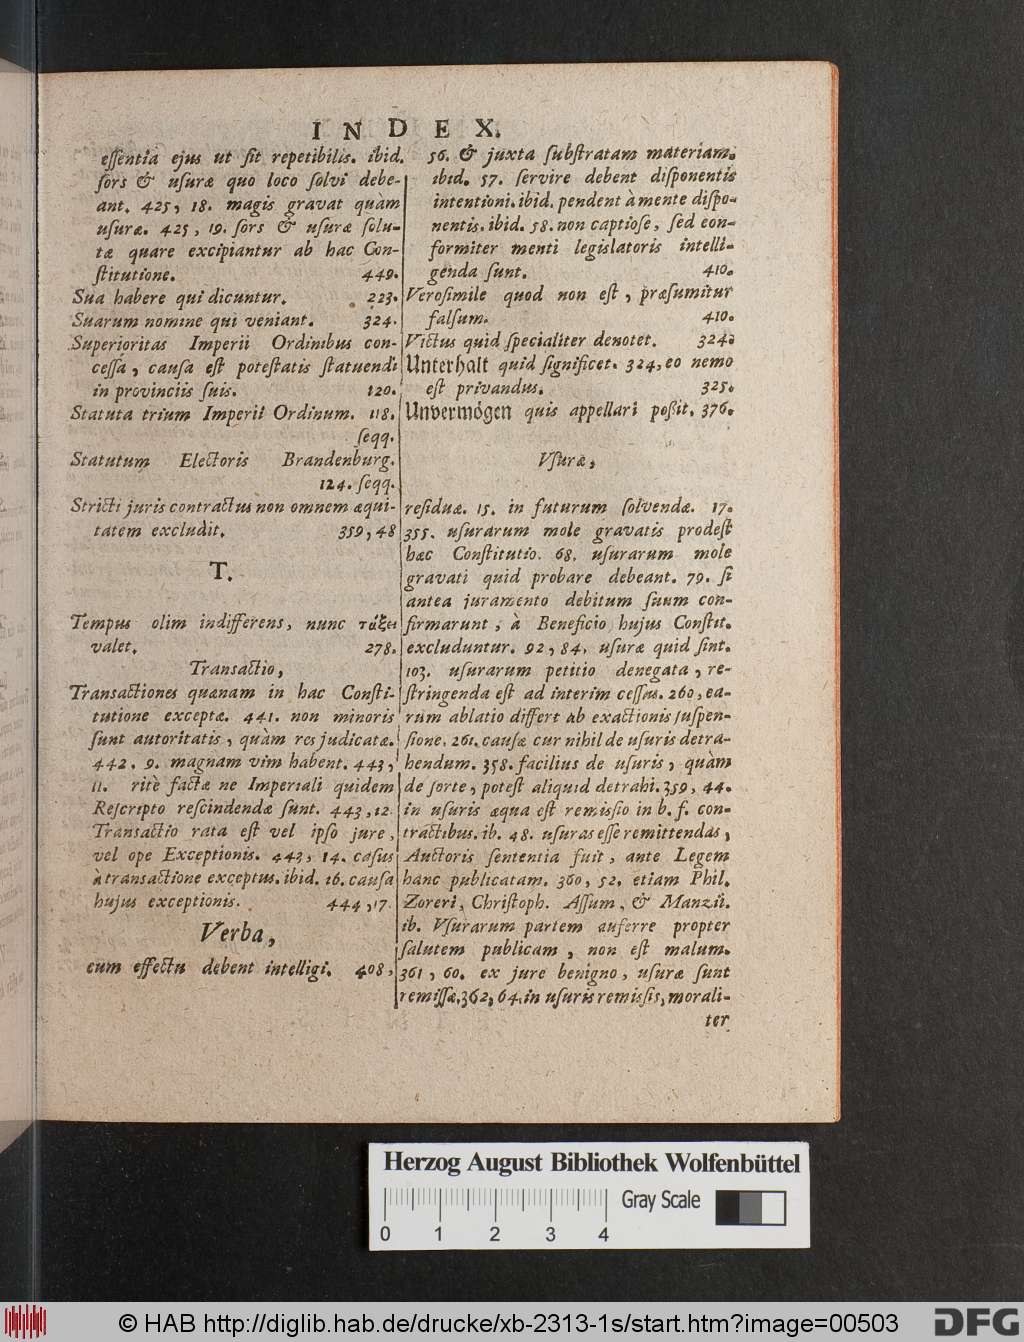 INDEX.
eſſentia ejus ut ſit repetibilis. ibid.
ſors & uſuræ quo loco ſolvi debe-
ant. 425, 18. magis gravat quàm
uſuræ. 425, 19. ſors & uſuræ ſolu-
tæ quare excipiantur ab hac Con-
ſtitutione. 449.
Sua habere qui dicuntur. 223.
Suarum nomine qui veniant. 324.
Superioritas Imperii Ordinibus con-
ceſſa, cauſa eſt poteſtatis ſtatuendi
in provinciis ſuis. 120.
Statuta trium Imperii Ordinum. 118.
ſeqq.
Statutum Electoris Brandenburg.
124. ſeqq.
Stricti juris contractus non omnem æqui-
tatem excludit. 359, 48
T.
Tempus olim indifferens, nunc τάξει
valet. 278.
Transactio,
Transactiones quanam in hac Conſti-
tutione exceptæ. 441. non minoris
ſunt autoritatis, quàm res judicatæ.
442. 9. magnam vim habent. 443,
11. ritè factæ ne Imperiali quidem
Reſcripto reſcindendæ ſunt. 443, 12
Transactio rata eſt vel ipſo jure,
vel ope Exceptionis. 443, 14. caſus
à transactione exceptus. ibid. 16. cauſa
hujus exceptionis. 444, 17.
Verba,
cum effectu debent intelligi. 408,
56. & juxta ſubſtratam materiam.
ibid. 57. ſervire debent diſponentis
intentioni. ibid. pendent à mente diſpo-
nentis. ibid. 58. non captioſe, ſed con-
formiter menti legislatoris intelli-
genda ſunt. 410.
Veroſimile quod non eſt, præſumitur
falſum. 410.
Victus quid ſpecialiter denotet. 324.
Unterhalt quid ſignificet. 324, eo nemo
eſt privandus. 325.
Unvermögen quis appellari poßit. 376.
Vſuræ,
reſiduæ. 15. in futurum ſolvendæ. 17.
355. uſurarum mole gravatis prodeſt
hæc Conſtitutio. 68. uſurarum mole
gravati quid probare debeant. 79. ſi
antea juramento debitum ſuum con-
firmarunt, à Beneficio hujus Conſtit.
excluduntur. 92, 84. uſuræ quid ſint.
103. uſurarum petitio denegata, re-
ſtringenda eſt ad interim ceſſas. 260, ea-
rum ablatio differt ab exactionis ſuſpen-
ſione. 261. cauſæ cur nihil de uſuris detra-
hendum. 358. facilius de uſuris, quàm
de ſorte, poteſt aliquid detrahi. 359, 44.
in uſuris æqua eſt remiſſio in b. f. con-
tractibus. ib. 48. uſuras eſſe remittendas,
Auctoris ſententia fuit, ante Legem
hanc publicatam. 360, 52. etiam Phil.
Zoreri, Chriſtoph. Aſſum, & Manzii.
ib. Vſurarum partem auferre propter
ſalutem publicam, non eſt malum.
361, 60. ex jure benigno, uſuræ ſunt
remiſſæ. 362, 64. in uſuris remiſſis, morali-
ter
Herzog August Bibliothek Wolfenbüttel
Gray Scale
0 1 2 3 4
© HAB http://diglib.hab.de/drucke/xb-2313-1s/start.htm?image=00503
DFG